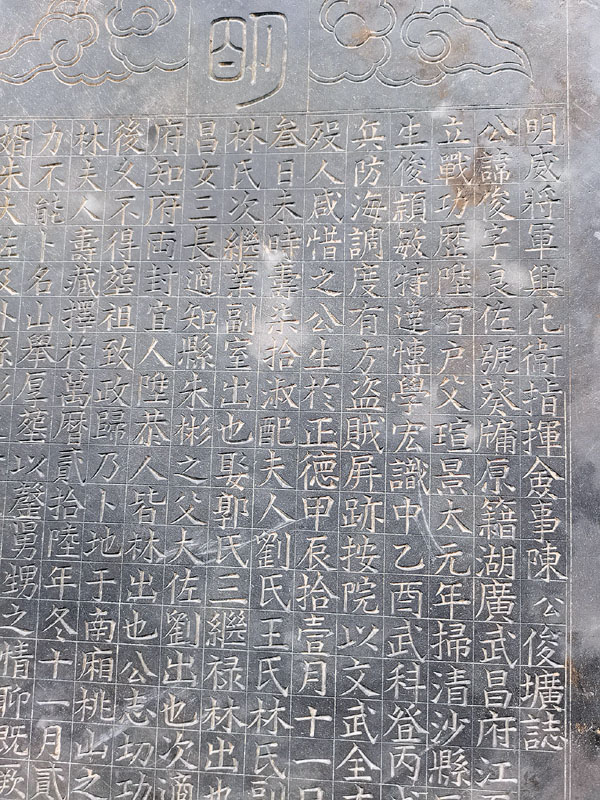 明
明威將軍興化衛指揮僉事陳公俊壙誌
公諱俊字良佐號葵牖原籍湖廣武昌府江
立戰功歷陞百户父瑄景太元年掃清沙縣
生俊穎敏特達慱學宏識中乙酉武科登丙
兵防海調度有方盗賊屏跡按院以文武全
殁人咸惜之公生於正德甲辰拾壹月十一日
叁日未時壽柒拾淑配夫人劉氏王氏林氏副
林氏次繼業副室出也娶郭氏三繼禄林出也
昌女三長適知縣朱彬之父大佐劉出也次適
府知府両封宜人陞恭人皆林出也公志切功
後乆不得葬祖致政歸乃卜地于南廂桃山之
林夫人壽藏擇於萬曆貳拾陸年冬十一月貳
力不能卜名山舉厚塟以罄舅甥之情聊既欵
婿朱大佐又